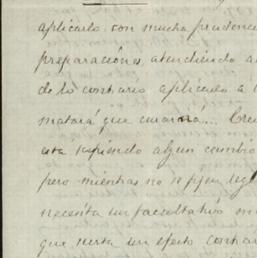 aplicarlo con mucha prudenc
preparación, atendiendo a
de lo contrario aplicado a
matará que curará... Cre
está sufriendo algun cambio
pero mientras no se fijen reg
necesita un facultativo m
que surta un efecto contra